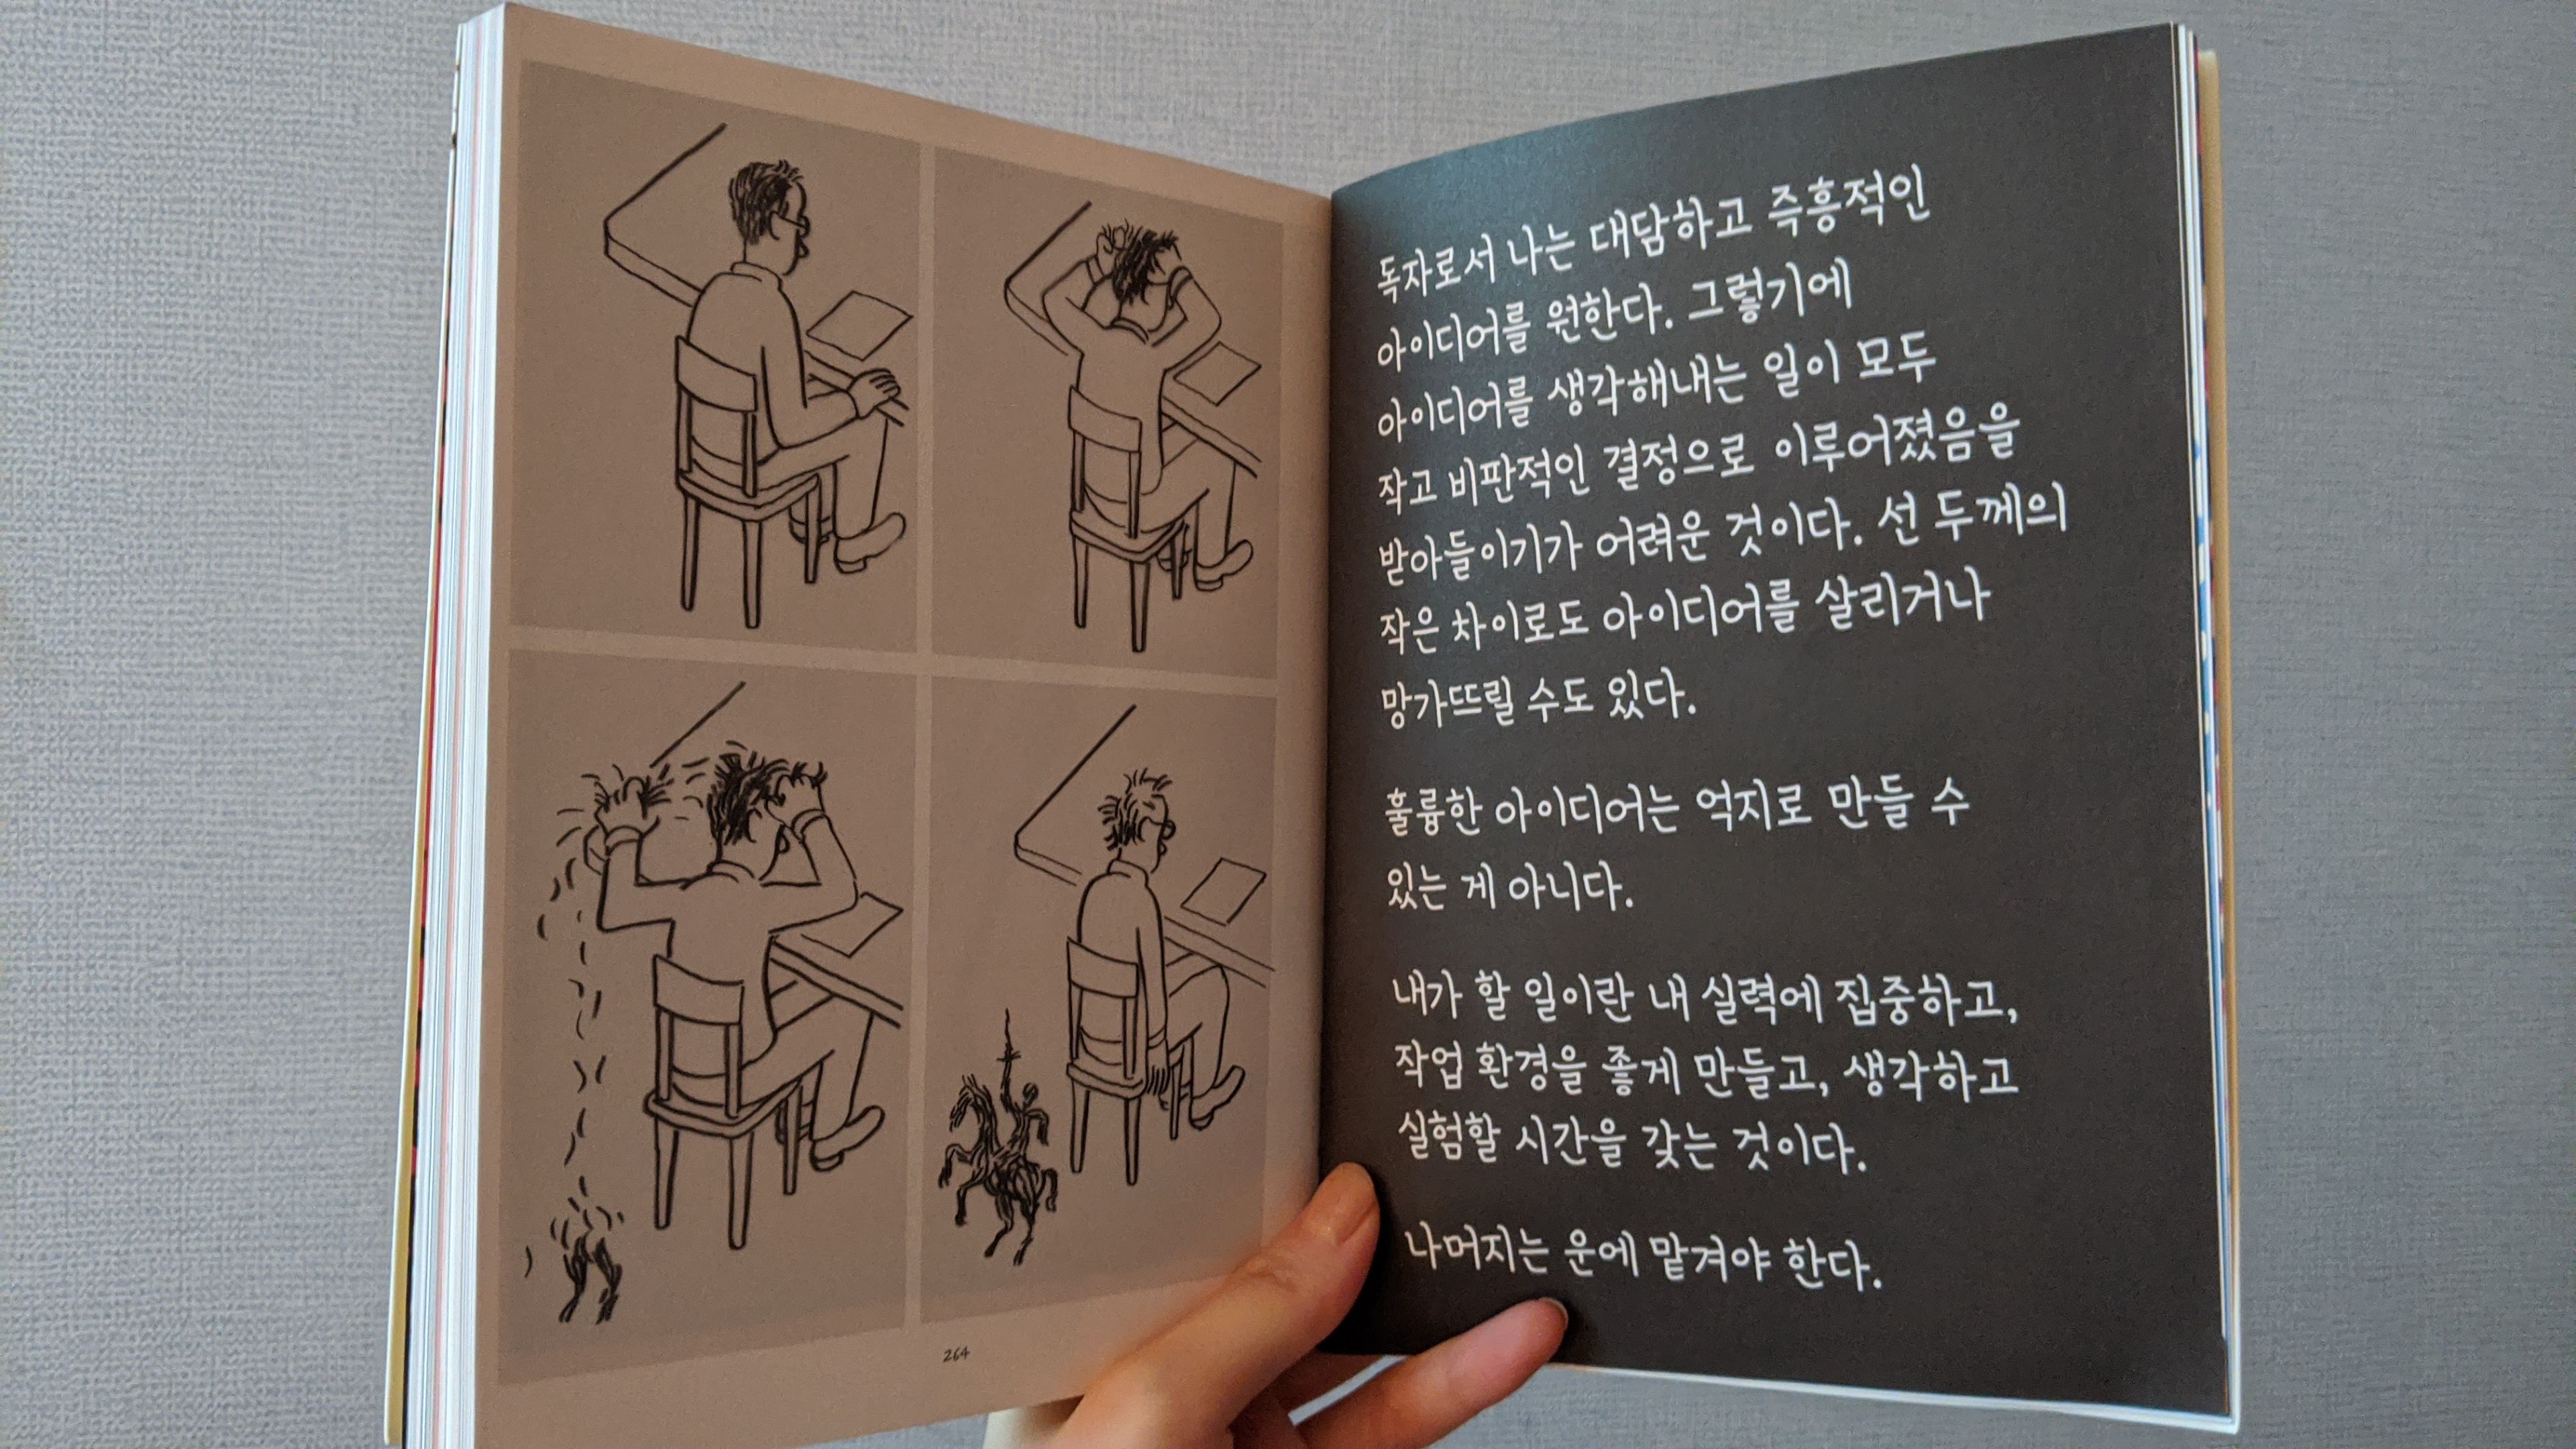 264
독자로서 나는 대담하고 즉흥적인
아이디어를 원한다. 그렇기에
아이디어를 생각해내는 일이 모두
작고 비판적인 결정으로 이루어졌음을
받아들이기가 어려운 것이다. 선 두께의
작은 차이로도 아이디어를 살리거나
망가뜨릴 수도 있다.
훌륭한 아이디어는 억지로 만들 수
있는 게 아니다.
내가 할 일이란 내 실력에 집중하고,
작업 환경을 좋게 만들고, 생각하고
실험할 시간을 갖는 것이다.
나머지는 운에 맡겨야 한다.